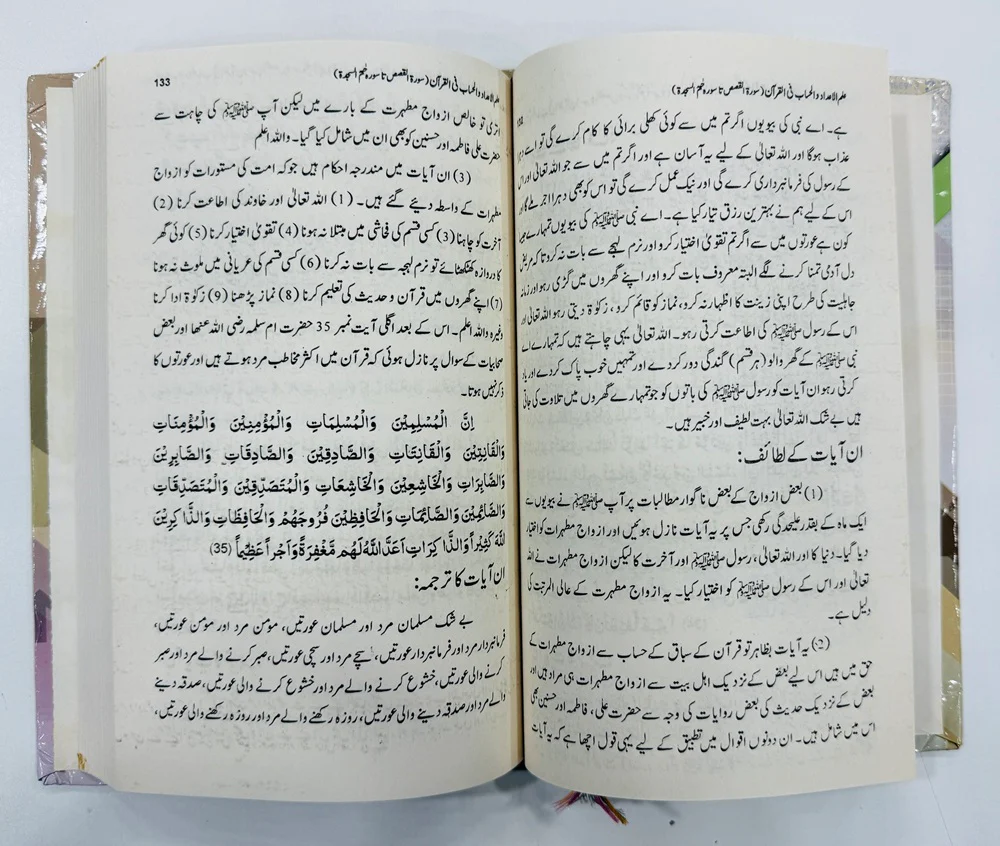 علم الاعداد والحساب فی القرآن (سورۃ القصص تا سورہ حٰم السجدۃ)
ہے۔ اے نبی کی بیویوں اگر تم میں سے کوئی کھلی برائی کا کام کرے گی تو اسے
عذاب ہوگا اور اللہ تعالیٰ کے لیے یہ آسان ہے اور اگر تم میں سے جو اللہ تعالیٰ اور
کے رسول کی فرمانبرداری کرے گی اور نیک عمل کرے گی تو اس کو بھی دہرا اجر ملے گا اور
اس کے لیے ہم نے بہترین رزق تیار کیا ہے۔ اے نبی ﷺ کی بیویوں تمہارے جیسے
کون ہے عورتوں میں سے اگر تم تقویٰ اختیار کرو اور نرم لہجے سے بات نہ کرو تا کہ مریض
دل آدمی تمنا کرنے لگے البتہ معروف بات کرو اور اپنے گھروں میں گڑی رہو اور زمانہ
جاہلیت کی طرح اپنی زینت کا اظہار نہ کرو، نماز کو قائم کرو، زکوٰۃ دیتی رہو اللہ تعالیٰ اور
اس کے رسول ﷺ کی اطاعت کرتی رہو۔ اللہ تعالیٰ یہی چاہتے ہیں کہ تمہارے اے
نبی ﷺ کے گھر والو (ہر قسم) گندگی دور کر دے اور تمہیں خوب پاک کر دے اور یاد
کرتی رہو ان آیات کو رسول ﷺ کی باتوں کو جو تمہارے گھروں میں تلاوت کی جاتی
ہیں بے شک اللہ تعالیٰ بہت لطیف اور خبیر ہیں۔
ان آیات کے لطائف:
(1) بعض ازواج کے بعض ناگوار مطالبات پر آپ ﷺ نے بیویوں سے
ایک ماہ کے بقدر علیحدگی رکھی جس پر یہ آیات نازل ہوئیں اور ازواج مطہرات کو اختیار
دیا گیا۔ دنیا کا اور اللہ تعالیٰ، رسول ﷺ اور آخرت کا لیکن ازواج مطہرات نے اللہ
تعالیٰ اور اس کے رسول ﷺ کو اختیار کیا۔ یہ ازواج مطہرت کے عالی المرتبت کی
دلیل ہے۔
(2) یہ آیات بظاہر تو قرآن کے سباق کے حساب سے ازواج مطہرات کے
حق میں ہیں اس لیے بعض کے نزدیک اہل بیت سے ازواج مطہرات ہی مراد ہیں اور
بعض کے نزدیک حدیث کی بعض روایات کی وجہ سے حضرت علی، فاطمہ اور حسنین بھی
اس میں شامل ہیں۔ ان دونوں اقوال میں تطبیق کے لیے یہی قول اچھا ہے کہ یہ آیات
علم الاعداد والحساب فی القرآن (سورۃ القصص تا سورہ حٰم السجدۃ) 133
اتری تو خالص ازواج مطہرت کے بارے میں لیکن آپ ﷺ کی چاہت سے
حضرت علی فاطمہ اور حسنین کو بھی ان میں شامل کیا گیا۔ واللہ اعلم
(3) ان آیات میں مندرجہ احکام ہیں جو کہ امت کی مستورات کو ازواج
مطہرات کے واسطہ دیئے گئے ہیں۔ (1) اللہ تعالیٰ اور خاوند کی اطاعت کرنا (2)
آخرت کو چاہنا (3) کسی قسم کی فحاشی میں مبتلا نہ ہونا (4) تقویٰ اختیار کرنا (5) کوئی گھر
کا دروازہ کھٹکھٹائے تو نرم لہجہ سے بات نہ کرنا (6) کسی قسم کی عریانی میں ملوث نہ ہونا
(7) اپنے گھروں میں قرآن و حدیث کی تعلیم کرنا (8) نماز پڑھنا (9) زکوٰۃ ادا کرنا
وغیرہ واللہ اعلم۔ اس کے بعد اگلی آیت نمبر 35 حضرت ام سلمہ رضی اللہ عنھا اور بعض
صحابیات کے سوال پر نازل ہوئی کہ قرآن میں اکثر مخاطب مرد ہوتے ہیں اور عورتوں کا
ذکر نہیں ہوتا۔
اِنَّ الْمُسْلِمِيْنَ وَالْمُسْلِمَاتِ وَالْمُؤْمِنِيْنَ وَالْمُؤْمِنَاتِ
وَالْقَانِتِيْنَ وَالْقَانِتَاتِ وَالصَّادِقِيْنَ وَالصَّادِقَاتِ وَالصَّابِرِيْنَ
وَالصَّابِرَاتِ وَالْخَاشِعِيْنَ وَالْخَاشِعَاتِ وَالْمُتَصَدِّقِيْنَ وَالْمُتَصَدِّقَاتِ
وَالصَّائِمِيْنَ وَالصَّائِمَاتِ وَالْحَافِظِيْنَ فُرُوْجَهُمْ وَالْحَافِظَاتِ وَالذَّاكِرِيْنَ
اللّٰهَ كَثِيْراً وَالذَّاكِرَاتِ اَعَدَّ اللّٰهُ لَهُم مَّغْفِرَةً وَاَجْراً عَظِيْماً (35)
ان آیات کا ترجمہ:
بے شک مسلمان مرد اور مسلمان عورتیں، مومن مرد اور مومن عورتیں،
فرمانبردار مرد اور فرمانبردار عورتیں، سچے مرد اور سچی عورتیں، صبر کرنے والے مرد اور صبر
کرنے والی عورتیں، خشوع کرنے والے مرد اور خشوع کرنے والی عورتیں، صدقہ دینے
والے مرد اور صدقہ دینے والی عورتیں، روزہ رکھنے والے مرد اور روزہ رکھنے والی عورتیں،